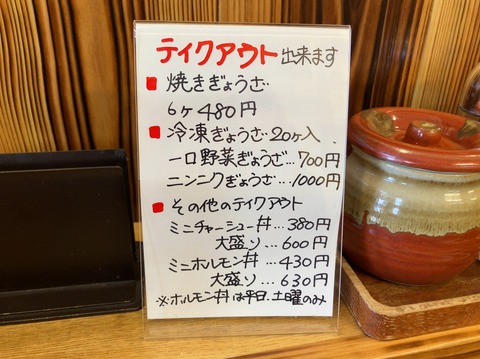 テイクアウト 出来ます
■ 焼きぎょうざ
6ヶ 480円
■ 冷凍ぎょうざ 20ヶ入
一口野菜ぎょうざ…700円
ニンニクぎょうざ…1000円
■ その他のテイクアウト
ミニチャーシュー丼…380円
大盛り…600円
ミニホルモン丼…430円
大盛り…630円
※ホルモン丼は平日、土曜のみ